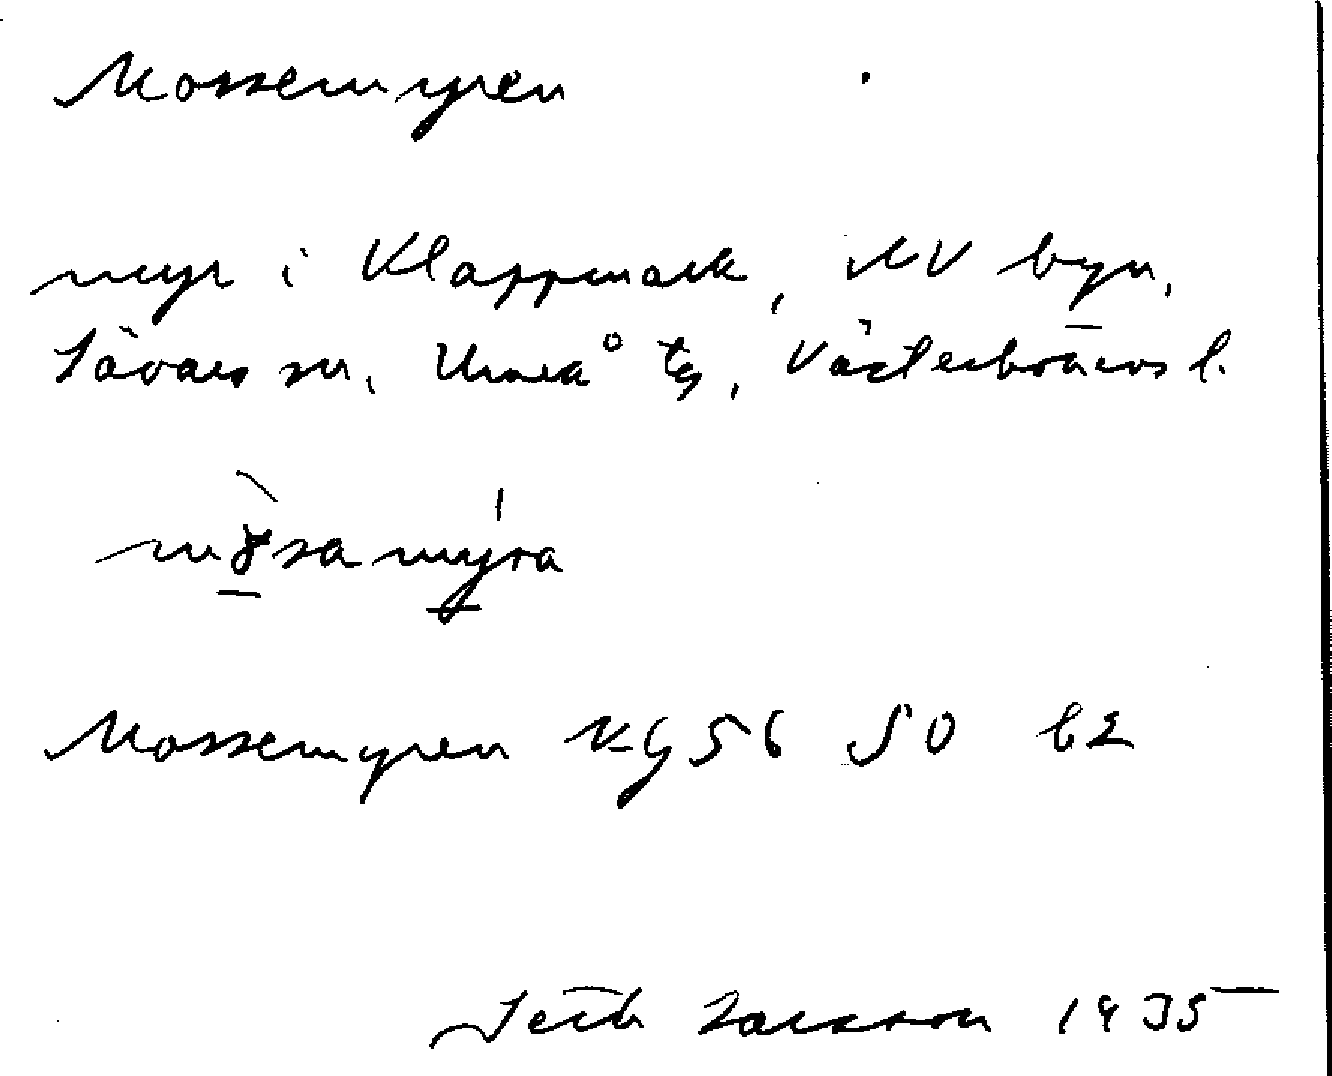 Mossemyren
myr i Klappmark, NV byn,
Sävars sn, Umeå tg, Västerbottens l.
mɤsamýra
Mossemyren Kg 56 SO b2
Seth Larsson 1935